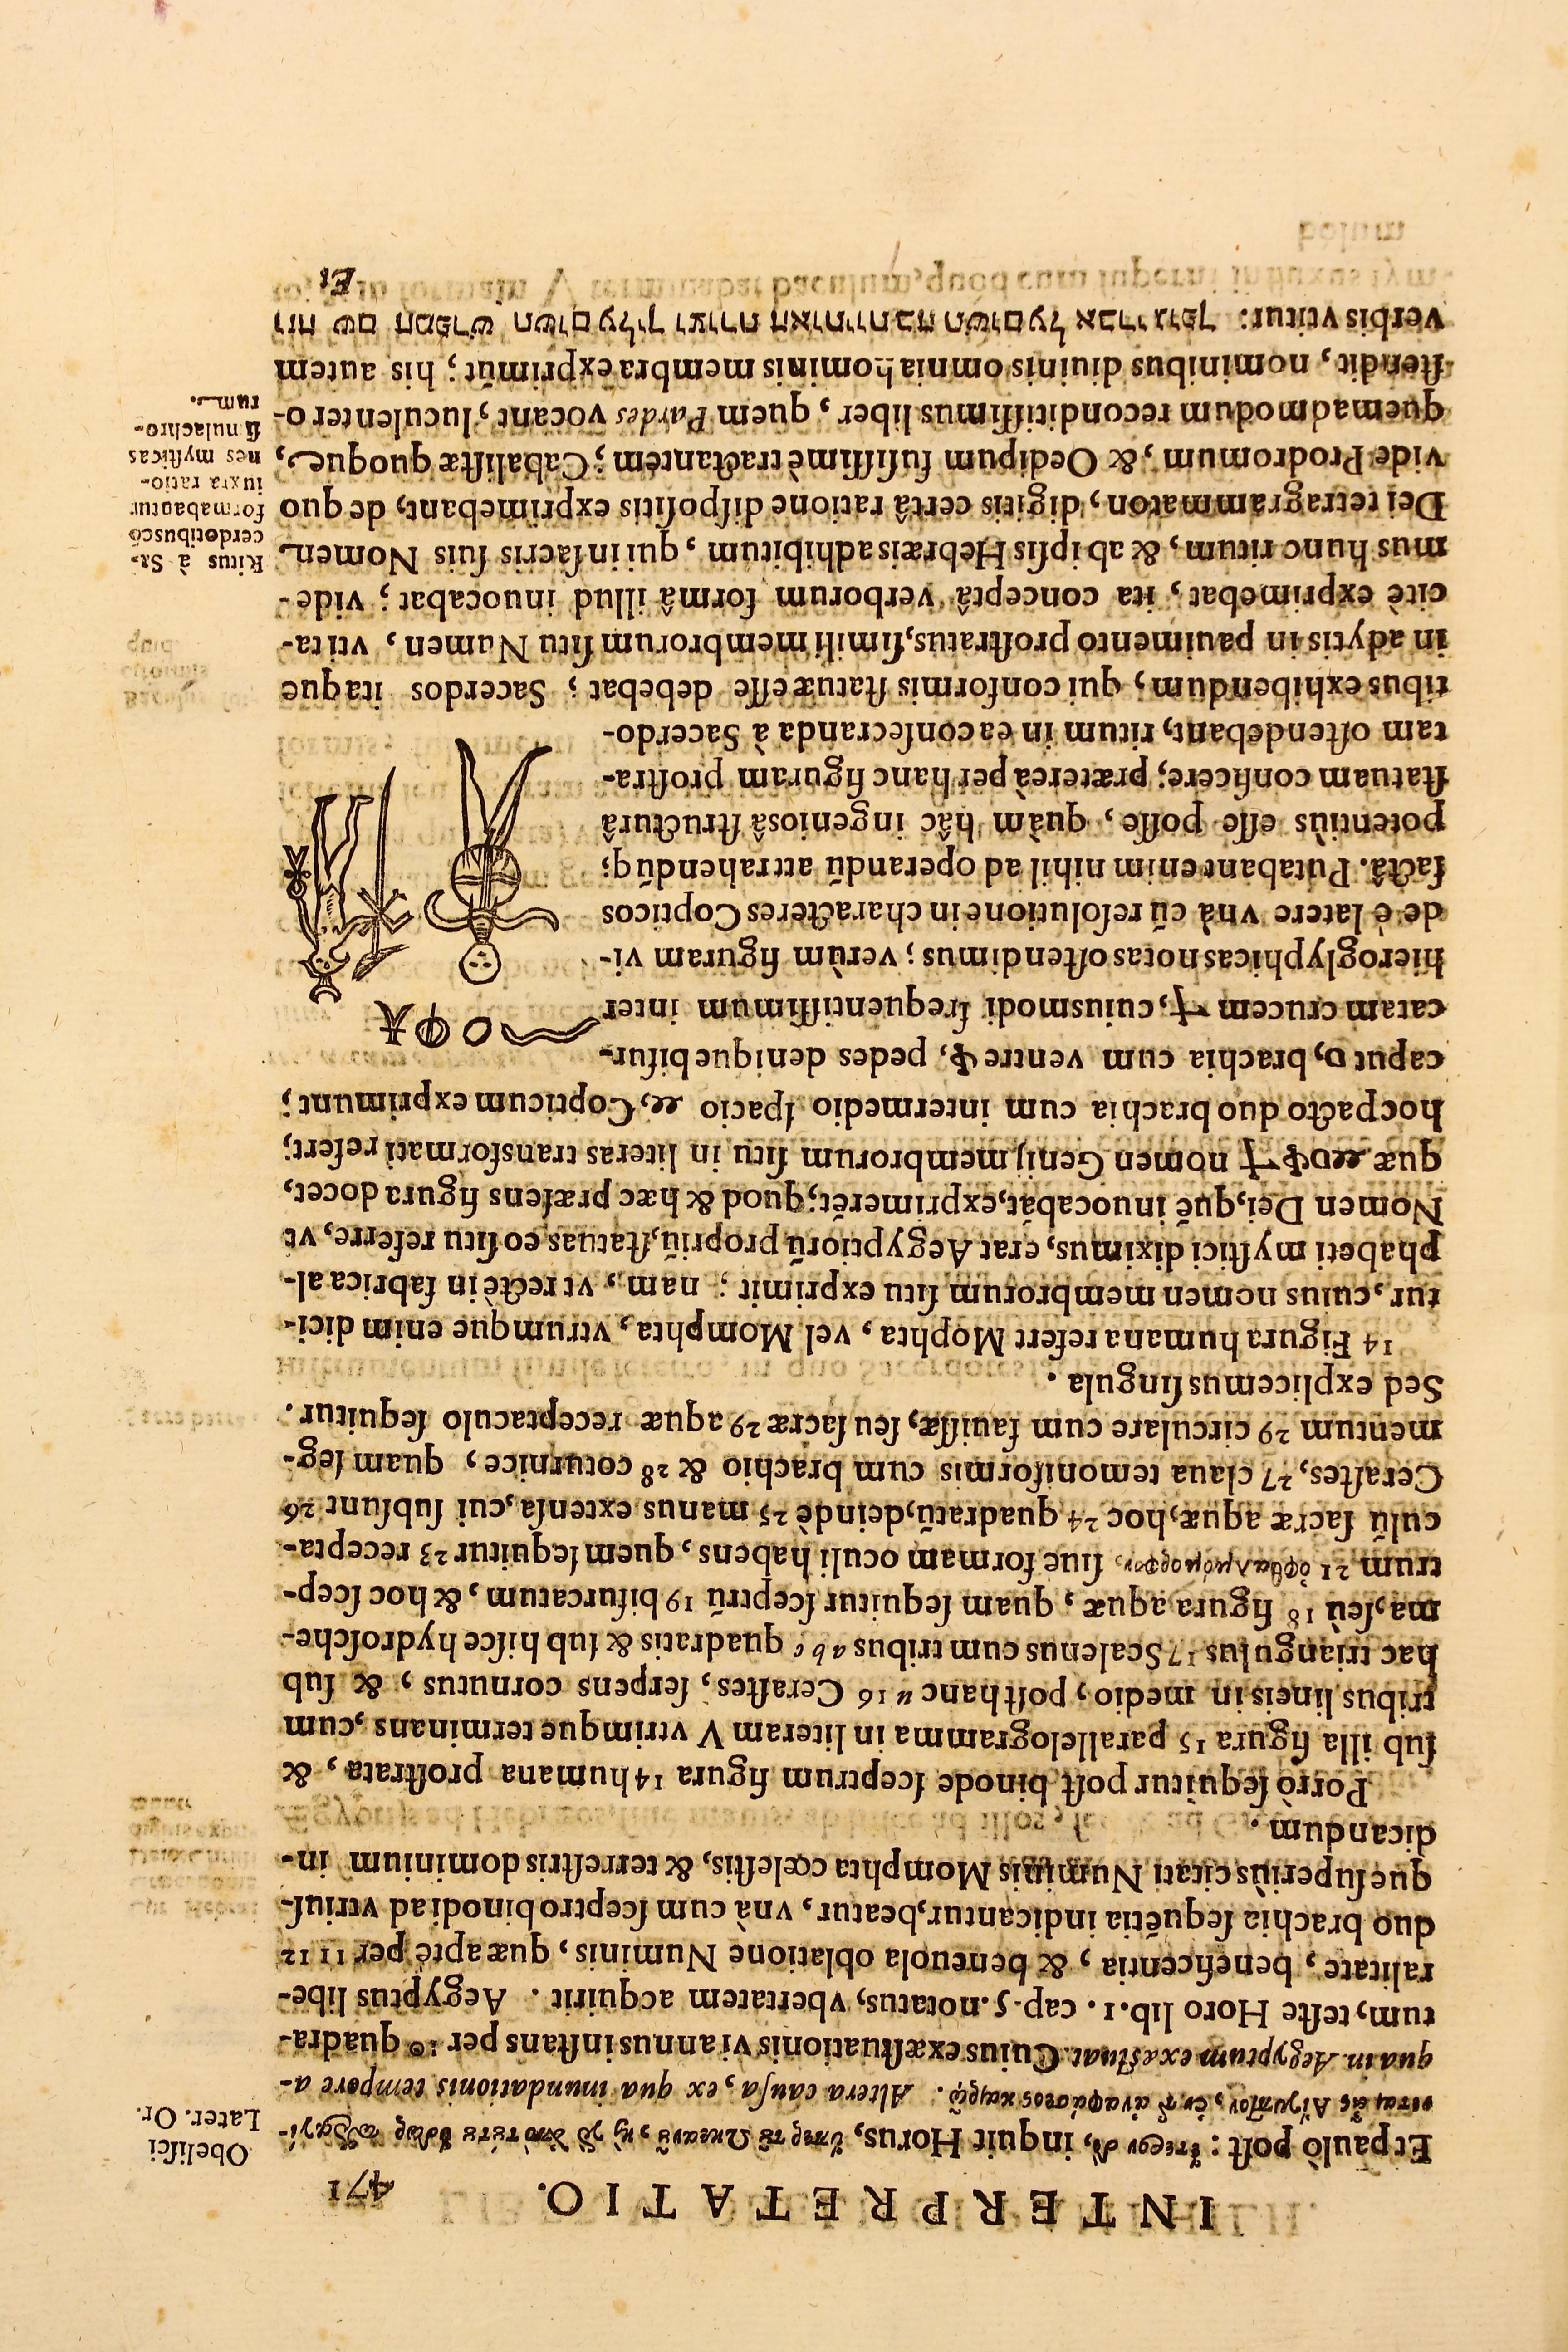 INTERPRETATIO. 471
Obelisci
Later. Or.
Et paulò post: inquit Horus,
Altera causa, ex qua inundationis tempore a-
qua in Aegyptum exæstuat. Cuius exæstuationis vi annus instans per 10 quadra-
tum, teste Horo lib. 1. cap. 5. notatus, vbertatem acquirit. Aegyptus libe-
ralitate, beneficentia, & beneuola oblatione Numinis, quæ aptè per 11 12
duo brachia sequētia indicantur, beatur, vnà cum sceptro binodi ad vtrius-
que superiùs citati Numinis Momphta cœlestis, & terrestris dominium in-
dicandum.
Porrò sequitur post binode sceptrum figura 14 humana prostrata, &
sub illa figura 15 parallelogramma in literam V vtrimque terminans, cum
tribus lineis in medio, post hanc 16 Cerastes, serpens cornutus, & sub
hac triangulus 17 Scalenus cum tribus a b c quadratis & sub hisce hydrosche-
ma, seù 18 figura aquæ, quam sequitur sceptrū 19 bifurcatum, & hoc scep-
trum 21 ὀφθαλμόμορφον, siue formam oculi habens, quem sequitur 23 recepta-
culū sacræ aquæ, hoc 24 quadratū, deindè 25 manus extensa, cui subsunt 26
Cerastes, 27 claua temoniformis cum brachio & 28 coturnice, quam seg-
mentum 29 circulare cum fauissæ, seu sacræ 29 aquæ receptaculo sequitur.
Sed explicemus singula.
14 Figura humana refert Mophta, vel Momphta, vtrumque enim dici-
tur, cuius nomen membrorum situ exprimit; nam, vt rectè in fabrica al-
phabeti mystici diximus, erat Aegyptiorū propriū, statuas eo situ referre, vt
Nomen Dei, quē inuocabāt, exprimerēt; quod & hæc præsens figura docet,
quæ nomen Genij membrorum situ in literas transformati refert;
hoc pacto duo brachia cum intermedio spacio Copticum exprimunt;
caput o, brachia cum ventre Φ, pedes denique bifur-
catam crucem cuiusmodi frequentissimum inter
hieroglyphicas notas ostendimus; verùm figuram vi-
de è latere vnà cū resolutione in characteres Copticos
factâ. Putabant enim nihil ad operandū attrahendūq;
potentiùs esse posse, quàm hâc ingeniosâ structurâ
statuam conficere; prætereà per hanc figuram prostra-
tam ostendebant, ritum in ea consecranda à Sacerdo-
tibus exhibendum, qui conformis statuæ esse debebat; Sacerdos itaque
in adytis in pauimento prostratus, simili membrorum situ Numen, vti ta-
citè exprimebat, ita conceptâ verborum formâ illud inuocabat; vide-
mus hunc ritum, & ab ipsis Hebræis adhibitum, qui in sacris suis Nomen
Dei tetragrammaton, digitis certâ ratione dispositis exprimebant, de quo
vide Prodromum, & Oedipum fusissimè tractantem; Cabalistæ quoque,
quemadmodum reconditissimus liber, quem Pardes vocant, luculenter o-
stendit, nominibus diuinis omnia hominis membra exprimūt; his autem
verbis vtitur: וזה שם המפרש השום עליך וצורת האותיות בה תשים על אברי גופך
Ritus à Sa-
cerdotibus cō
formabatur
iuxta ratio-
nes mysticas
si nulachro-
rum.
Et